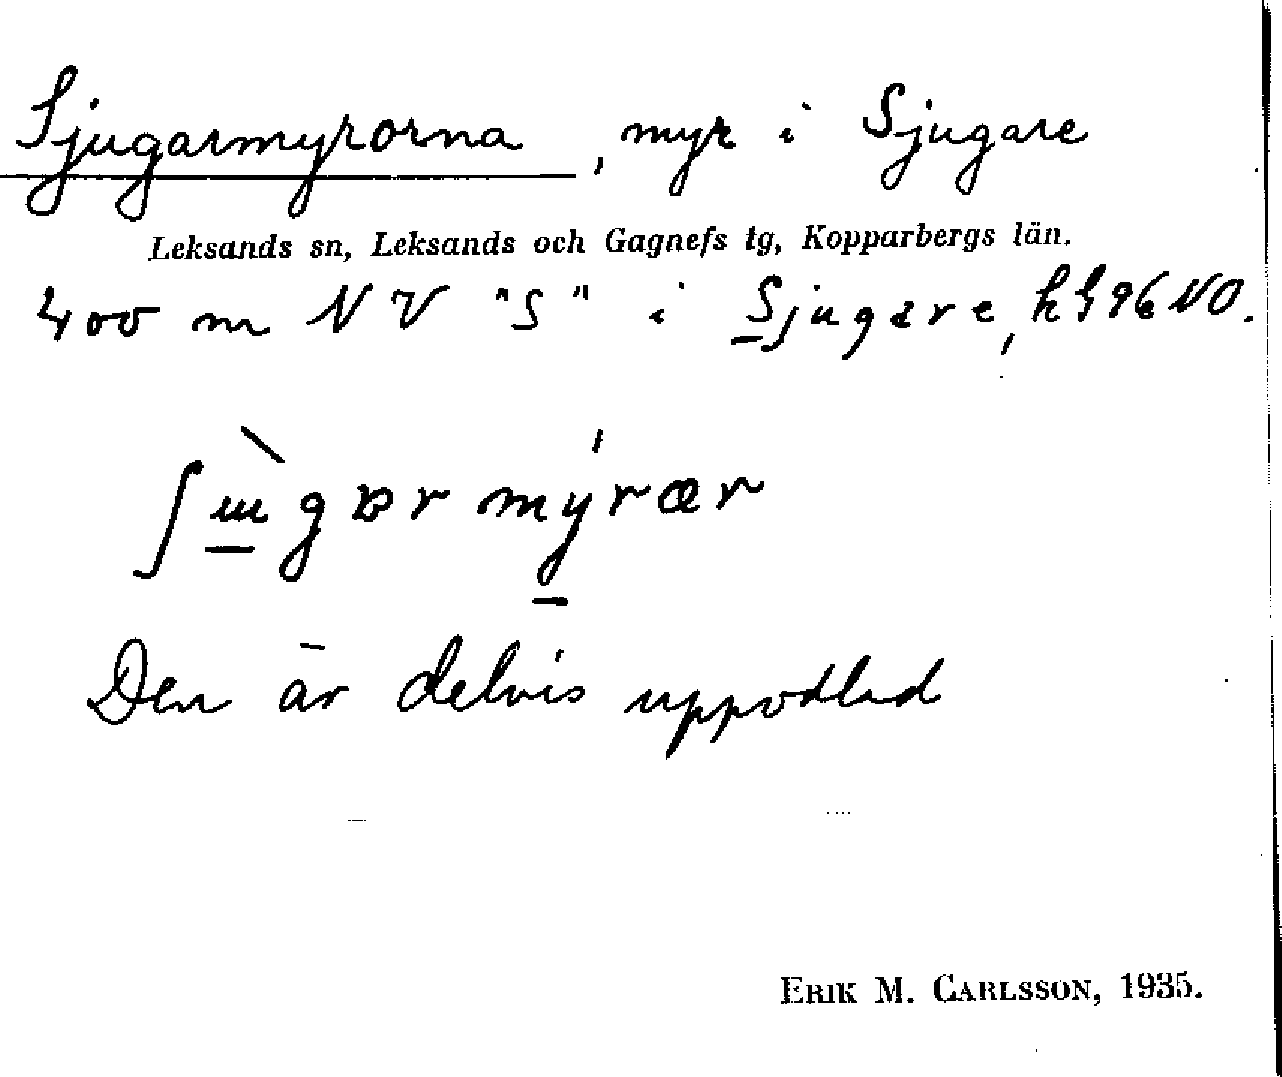 Sjugarmyrorna, myr i Sjugare
Leksands sn, Leksands och Gagnefs tg, Kopparbergs län.
400 m NV "S" i Sjugare, kf 96 NO.
Den är delvis uppodlad
ERIK M. CARLSSON, 1935.